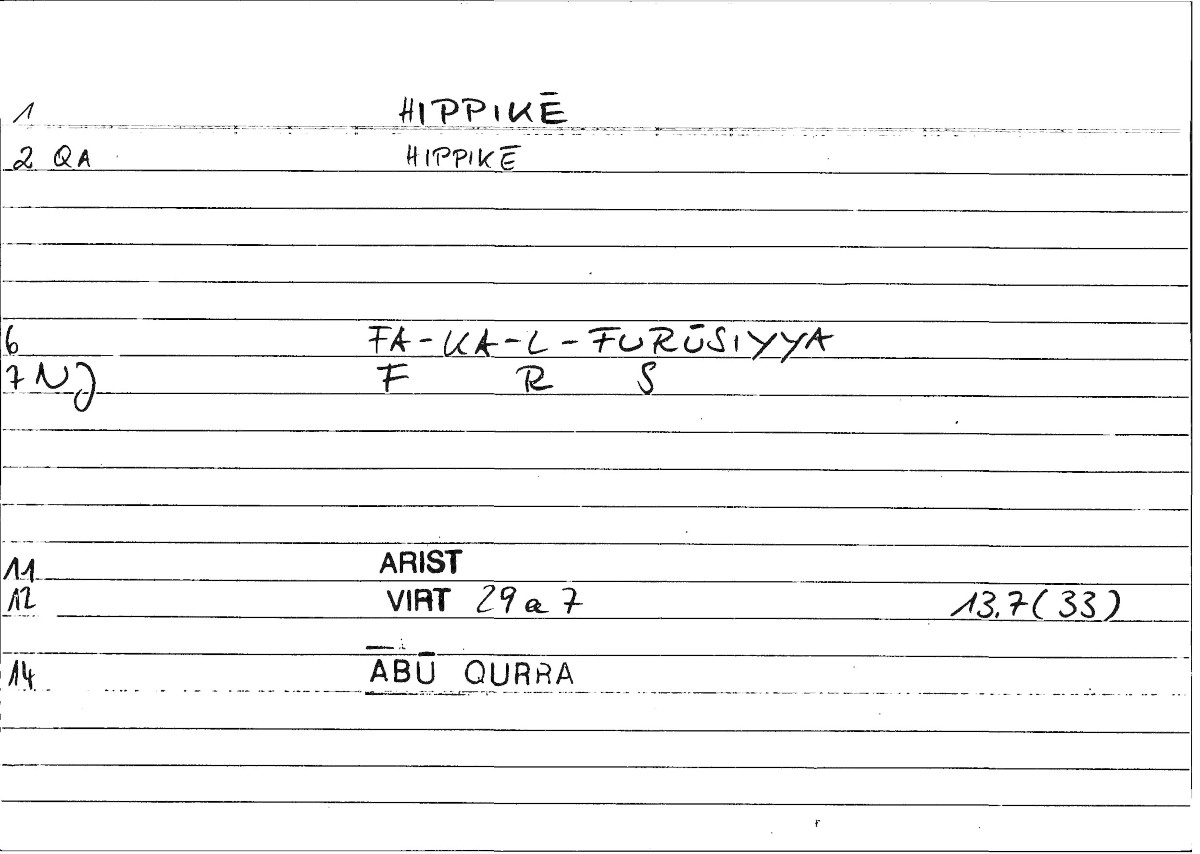 1 HIPPIKĒ
2 QA HIPPIKĒ
6 FA-KA-L-FURŪSIYYA
7 NJ F R S
11 ARIST
12 VIRT 29 a 7 13,7 (33)
14 ABŪ QURRA